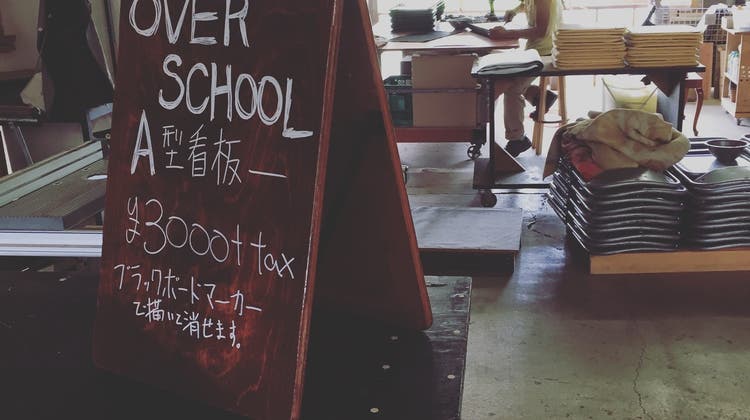 OVER
SCHOOL
A型看板ー
¥3000+tax
ブラックボードマーカー
で描いて消せます。